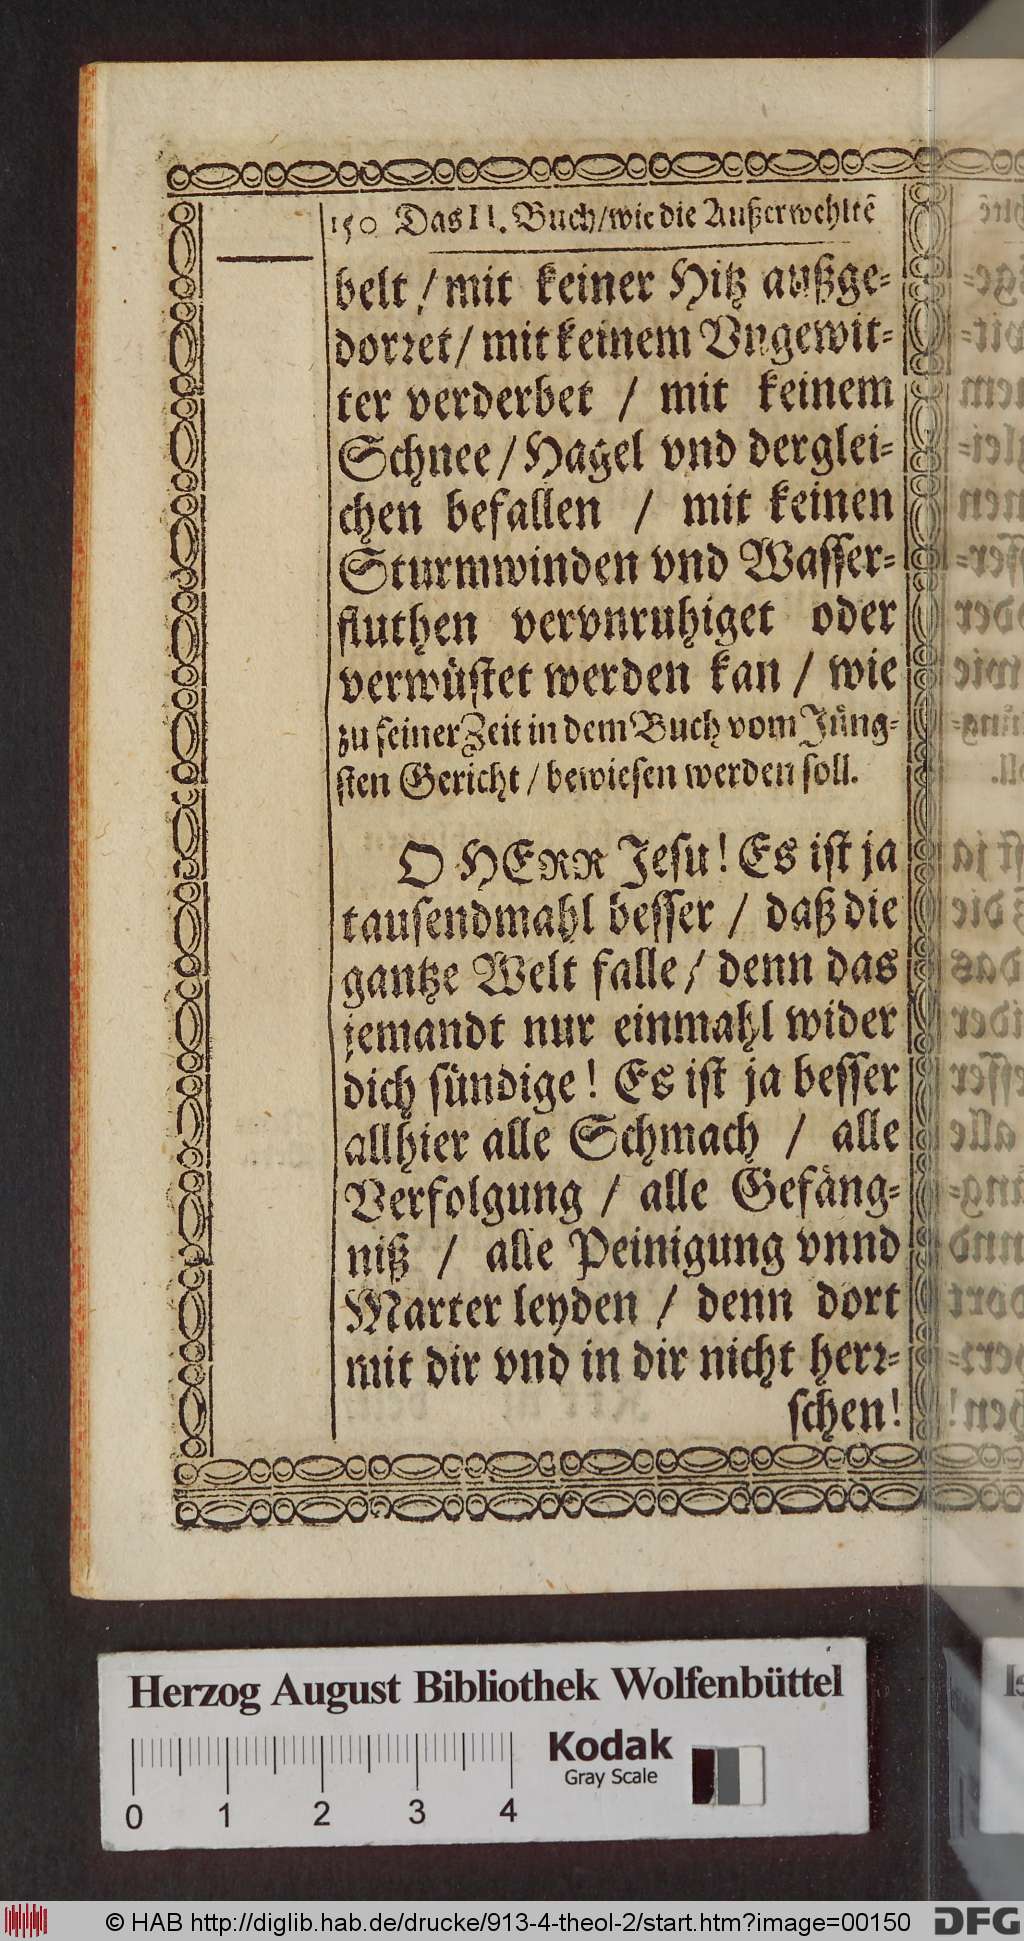 150 Das II. Buch/wie die Außerwehltẽ
belt / mit keiner Hitz außge-
dorret / mit keinem Vngewit-
ter verderbet / mit keinem
Schnee / Hagel vnd derglei-
chen befallen / mit keinen
Sturmwinden vnd Wasser-
fluthen vervnruhiget oder
verwüstet werden kan / wie
zu seiner Zeit in dem Buch vom Jüng-
sten Gericht / bewiesen werden soll.
O HERR Jesu! Es ist ja
tausendmahl besser / daß die
gantze Welt falle / denn das
jemandt nur einmahl wider
dich sündige! Es ist ja besser
allhier alle Schmach / alle
Verfolgung / alle Gefäng-
niß / alle Peinigung vnnd
Marter leyden / denn dort
mit dir vnd in dir nicht herr-
schen!
Herzog August Bibliothek Wolfenbüttel
Kodak
Gray Scale
0 1 2 3 4
© HAB http://diglib.hab.de/drucke/913-4-theol-2/start.htm?image=00150
DFG